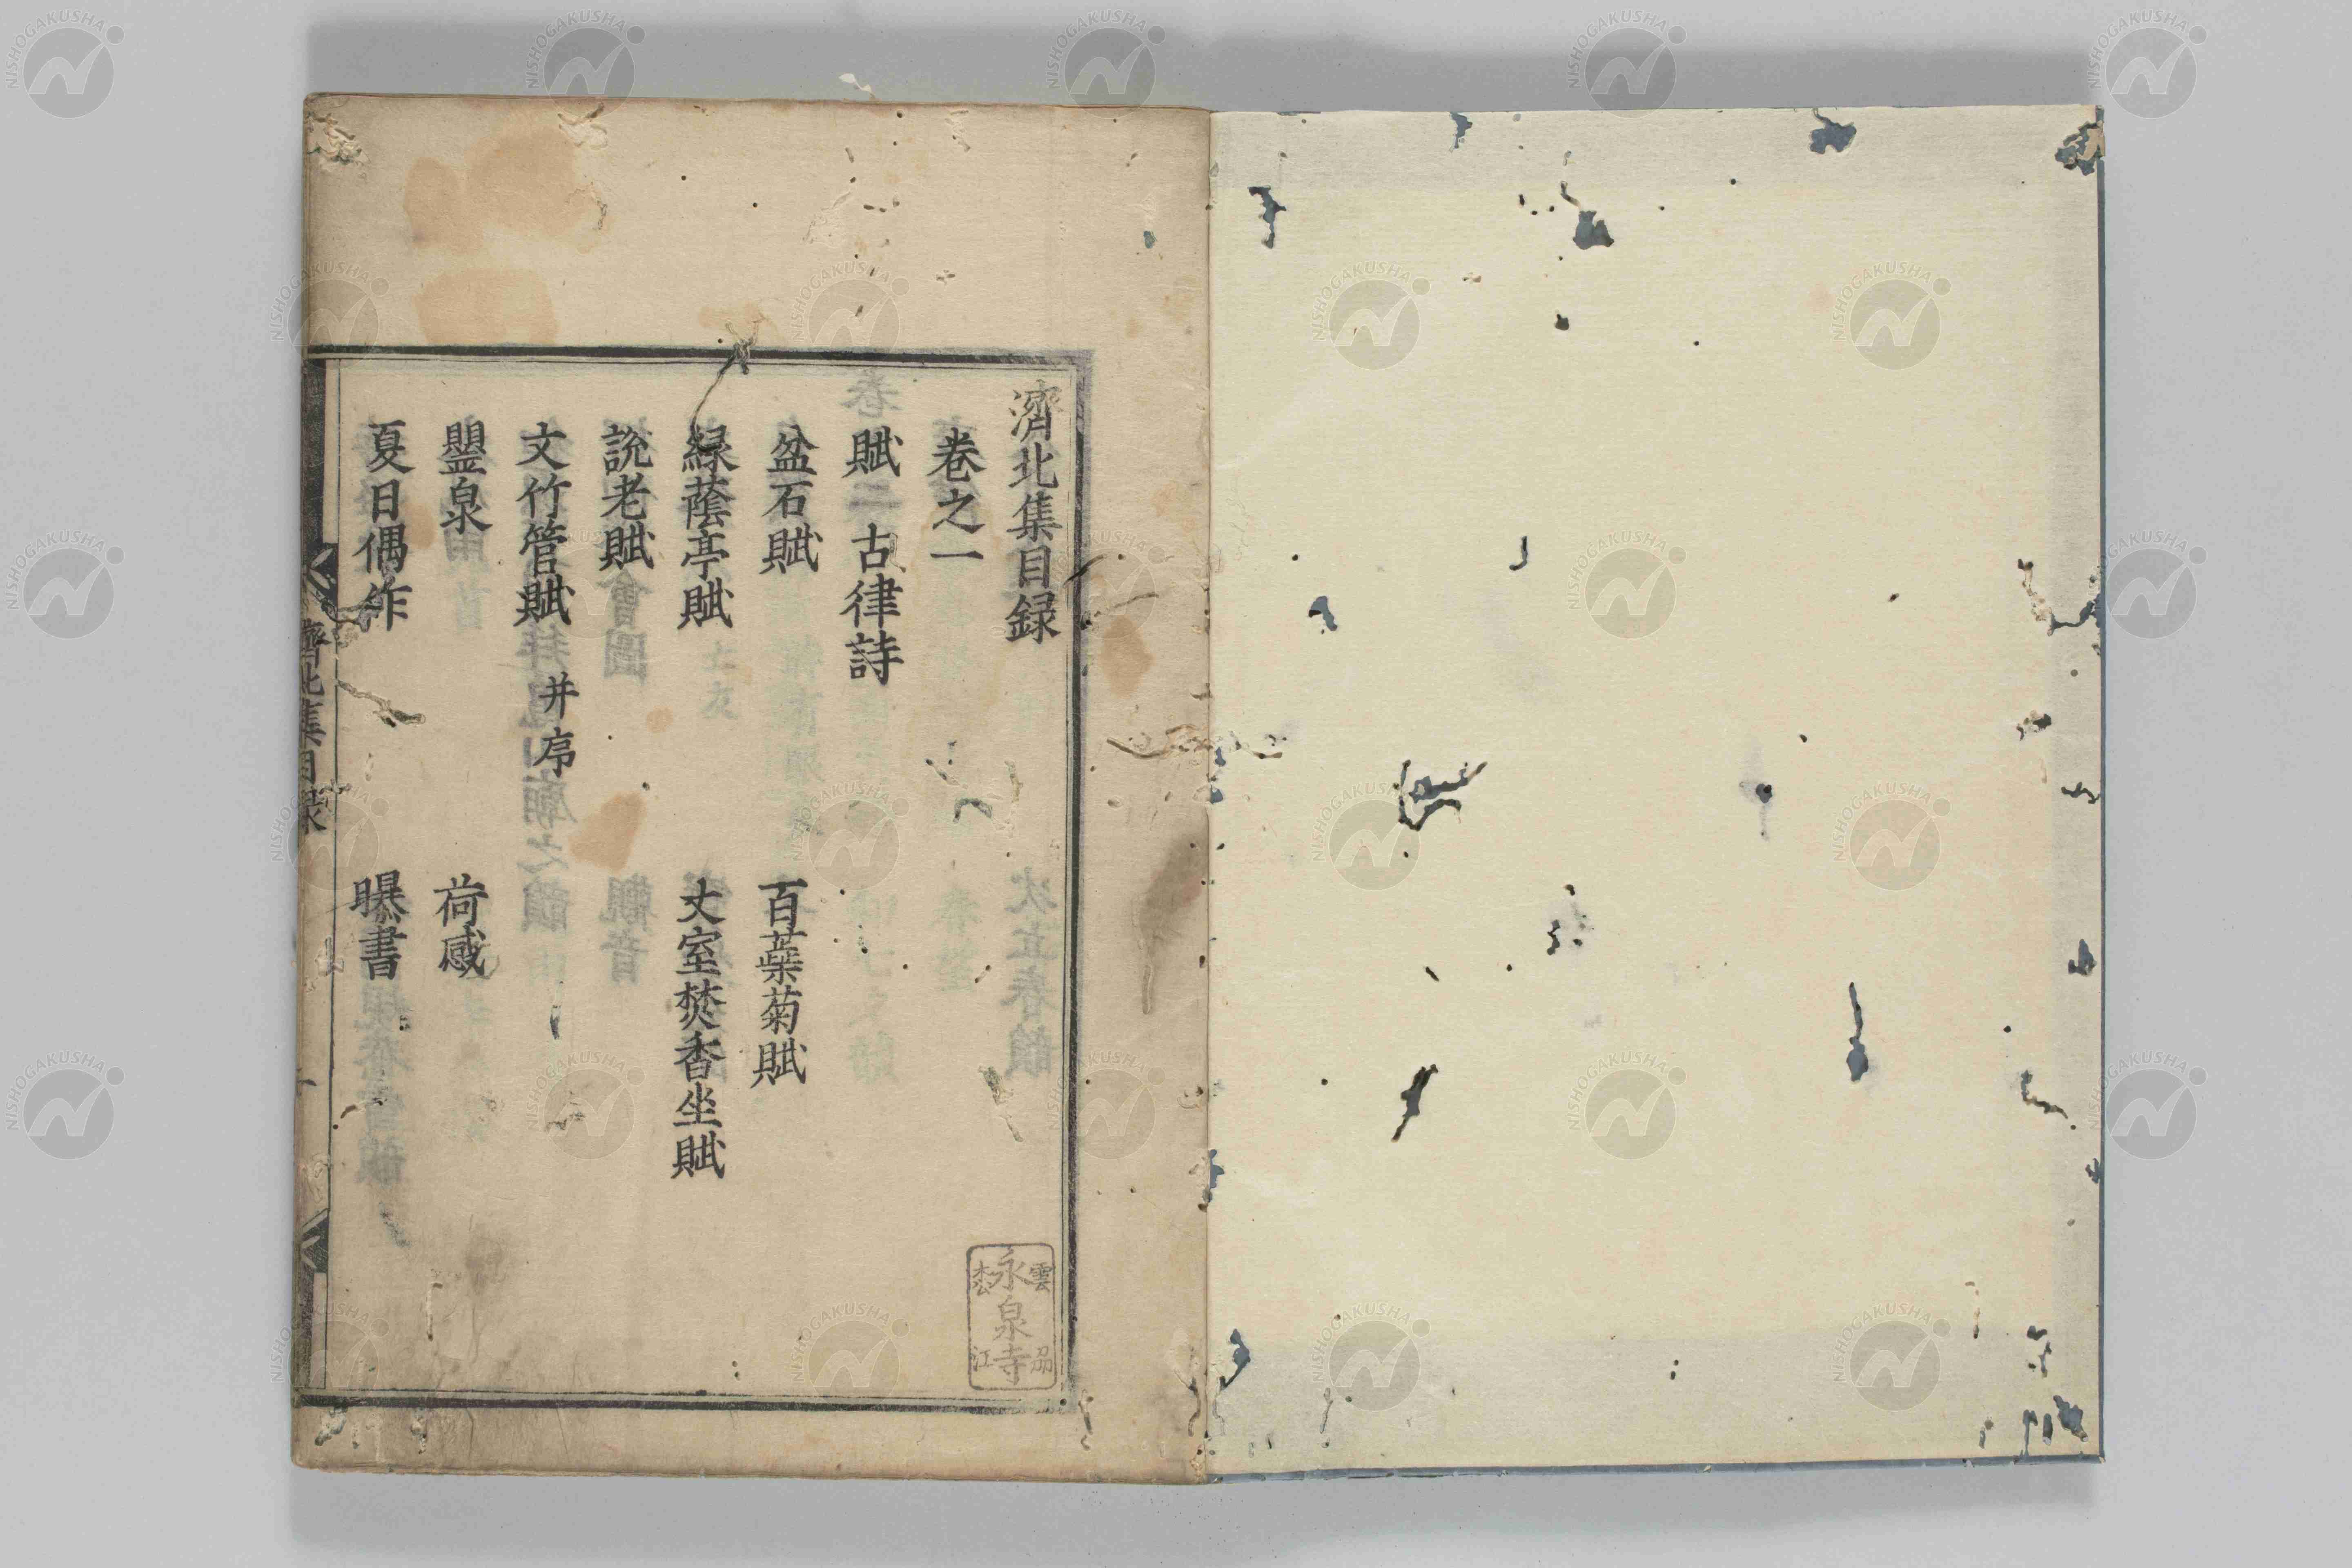 濟北集目録
卷之一
賦 古律詩
盆石賦 百葉菊賦
緑蔭亭賦 丈室焚香坐賦
說老賦
文竹管賦 并序
盥泉 荷感
夏日偶作 曝書
濟北集目録
雲
永泉寺
江
NISHOGAKUSHA